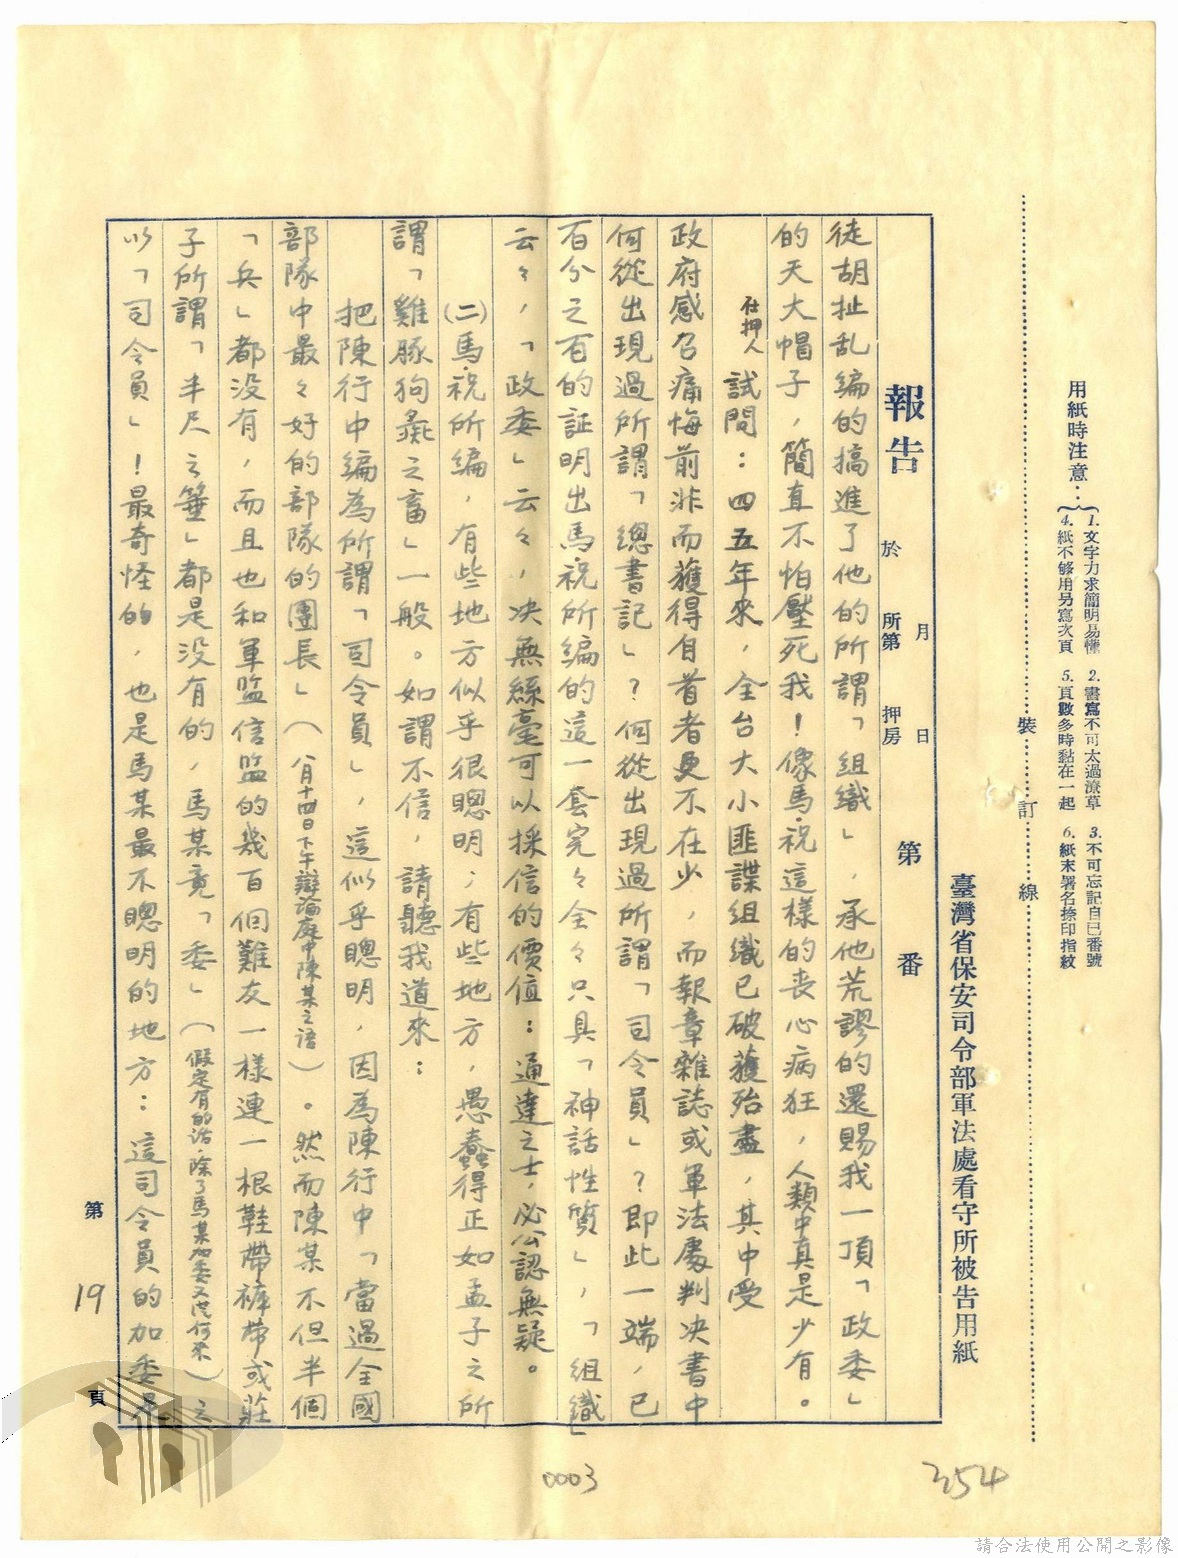 用紙時注意：
1. 文字力求簡明易懂　2. 書寫不可太過潦草　3. 不可忘記自己番號
4. 紙不够用另寫次頁　5. 頁數多時黏在一起　6. 紙末署名捺印指紋
裝訂線
臺灣省保安司令部軍法處看守所被告用紙
報告　於　月　日
所第　押房　第　番
徒胡扯乱編的搞進了他的所謂「組織」，承他荒謬的還賜我一頂「政委」
的天大帽子，簡直不怕壓死我！像馬．祝這樣的喪心病狂，人類中真是少有。
在押人
試問：四五年來，全台大小匪諜組織已破獲殆盡，其中受
政府感召痛悔前非而獲得自首者更不在少，而報章雜誌或軍法處判决書中
何從出現過所謂「總書記」？何從出現過所謂「司令員」？即此一端，已
百分之百的証明出馬祝所編的這一套完々全々只具「神話性質」，「組織」
云々，「政委」云々，决無絲毫可以採信的價值：通達之士，必公認無疑。
(二)馬．祝所編，有些地方似乎很聰明；有些地方，愚蠢得正如孟子之所
謂「雞豚狗彘之畜」一般。如謂不信，請聽我道來：
把陳行中編為所謂「司令員」，這似乎聰明，因為陳行中「當過全國
部隊中最々好的部隊的團長」（八月十四日下午辯論庭中陳某之語）。然而陳某不但半個
「兵」都没有，而且也和軍監信監的幾百個難友一樣連一根鞋帶褲帶或莊
子所謂「半尺之箠」都是没有的，馬某竟「委」（假定有的話，除了馬某加委又從何來）之
以「司令員」！最奇怪的，也是馬某最不聰明的地方：這司令員的加委是
第19頁
0003
354
請合法使用公開之影像